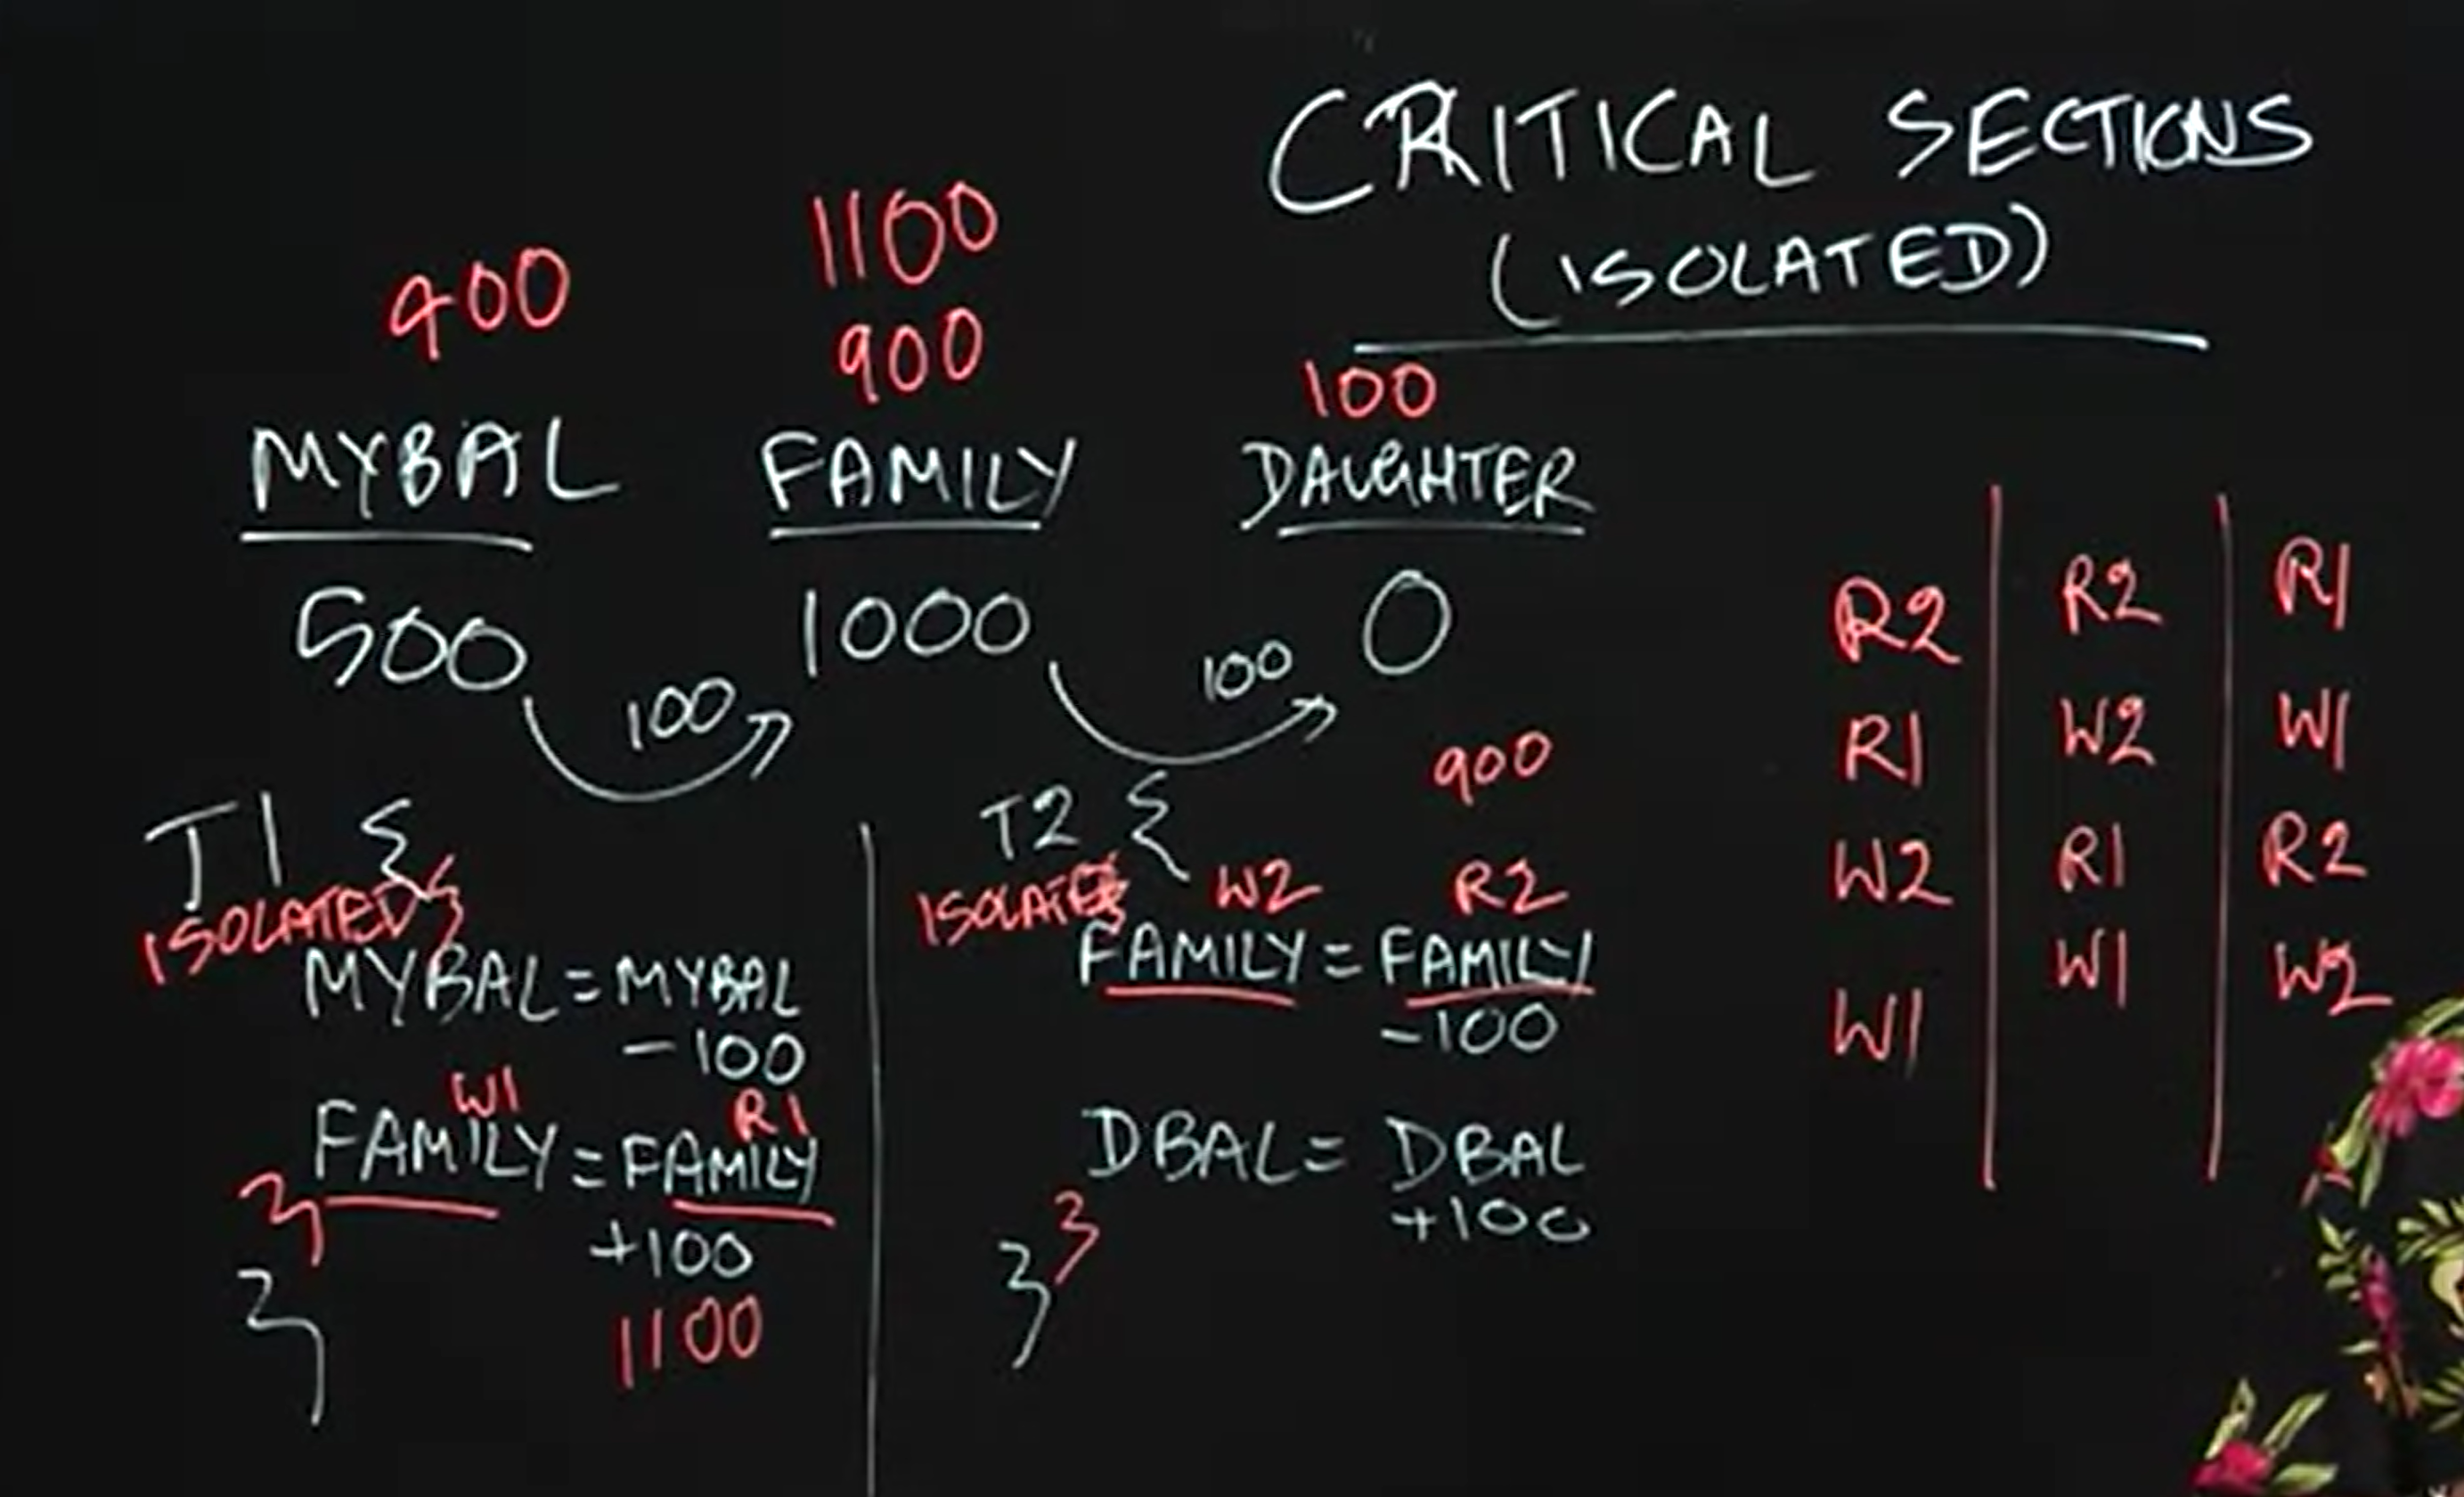 CRITICAL SECTIONS
(ISOLATED)
400 1100
900
100
MYBAL FAMILY DAUGHTER
500 1000 0
100 100
T1 {
ISOLATED {
MYBAL = MYBAL
- 100
W1 R1
FAMILY = FAMILY
+100
}
}
1100
900
T2 {
ISOLATED { W2 R2
FAMILY = FAMILY
-100
DBAL = DBAL
+100
}
}
R2 R2 R1
R1 W2 W1
W2 R1 R2
W1 W1 W2